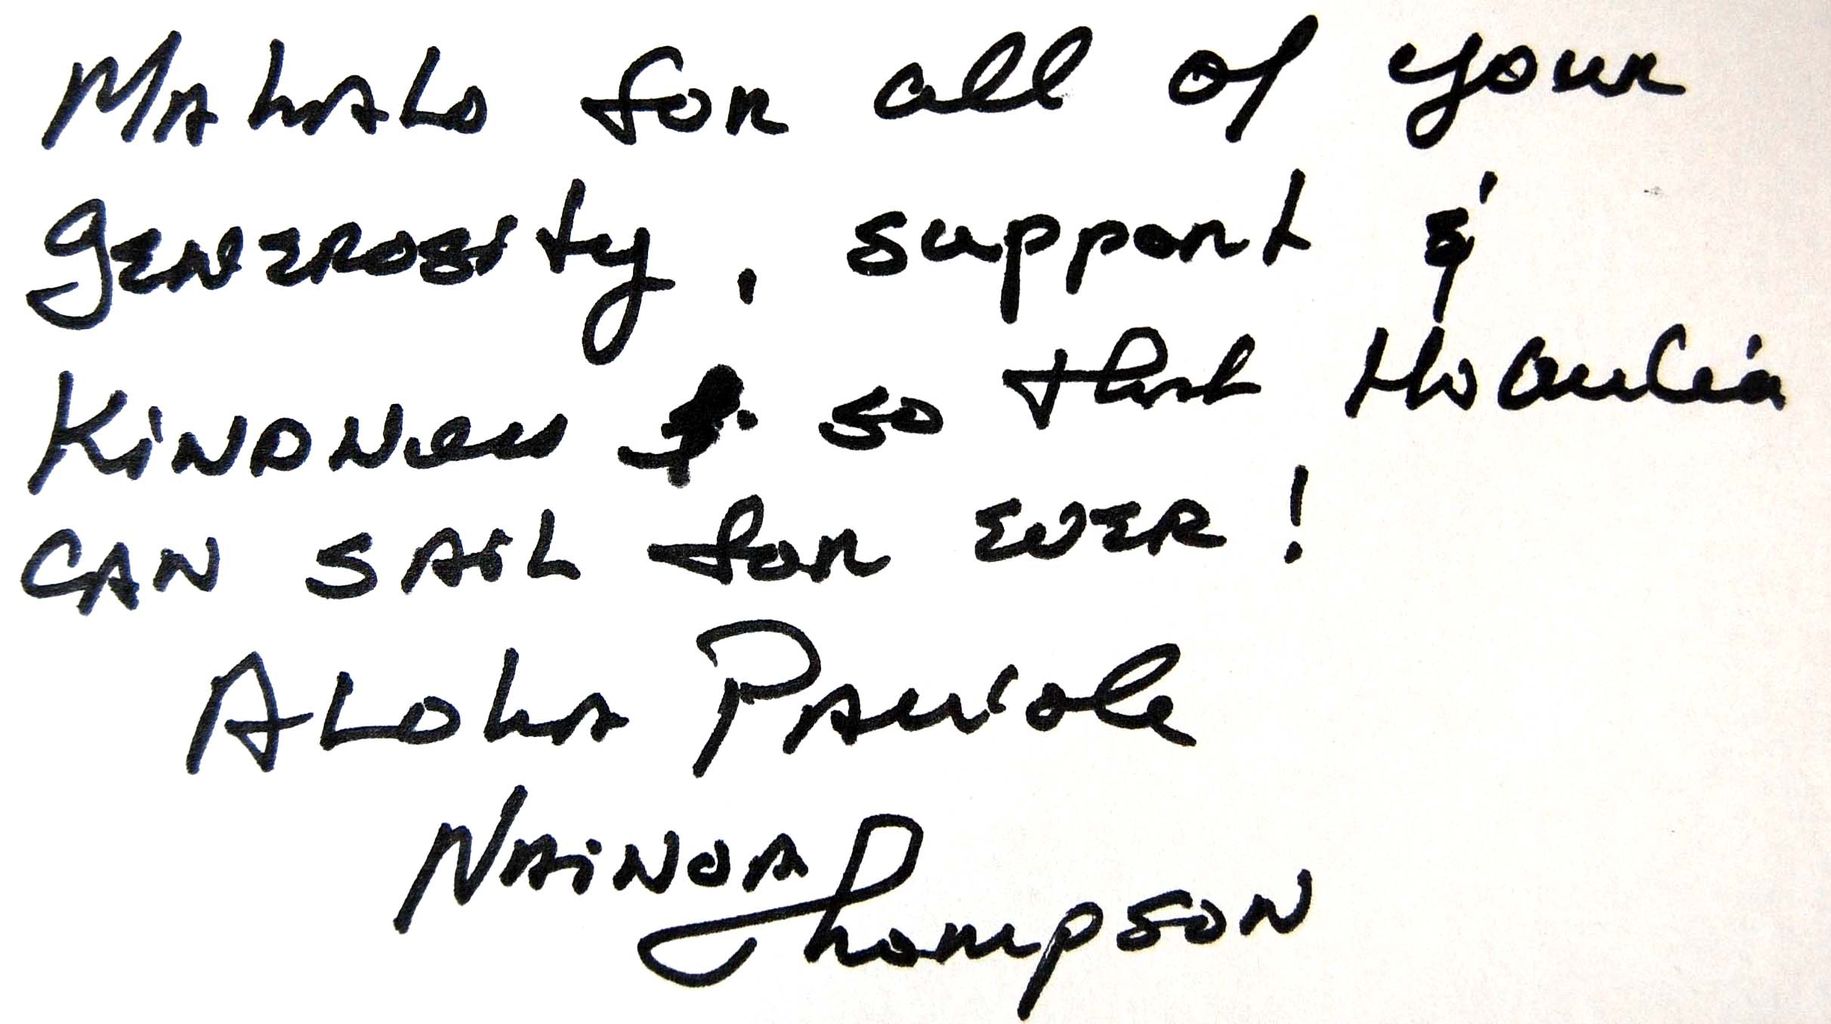 Mahalo for all of your
generosity, support &
kindness so that Hōkūle'a
can sail for ever!
Aloha Pau'ole
Nainoa
Thompson